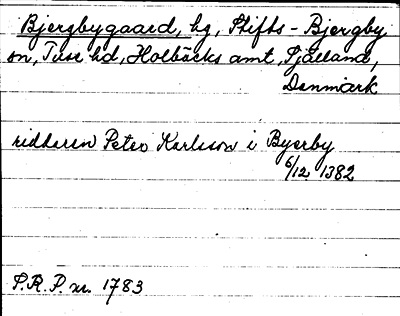 Bjergbygaard, hg, Stifts-Bjergby
sn, Tuse hd, Holbäcks amt, Själland,
Denmark
riddaren Peter Karlsson i Byerby
6/12 1382
P.R.P. nr. 1783